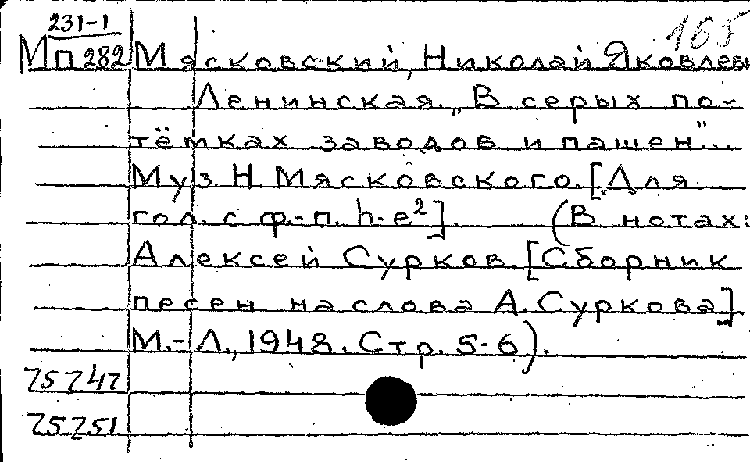 165
231-1
Мп 282 Мясковский, Николай Яковлев
Ленинская. „В серых по-
тёмках заводов и пашен"...
Муз. Н. Мясковского. [Для
гол. с ф.-п. h-e²]. (В нотах:
Алексей Сурков. [Сборник
песен на слова А. Суркова]
М.-Л., 1948. Стр. 5-6).
75747
75751